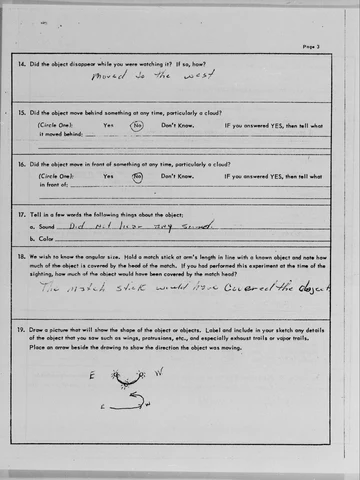 Page 3
14. Did the object disappear while you were watching it? If so, how?
moved to the west
15. Did the object move behind something at any time, particularly a cloud?
(Circle One): Yes No Don't Know. IF you answered YES, then tell what
it moved behind:
16. Did the object move in front of something at any time, particularly a cloud?
(Circle One): Yes No Don't Know. IF you answered YES, then tell what
in front of:
17. Tell in a few words the following things about the object:
a. Sound Did not hear any sound.
b. Color
18. We wish to know the angular size. Hold a match stick at arm's length in line with a known object and note how
much of the object is covered by the head of the match. If you had performed this experiment at the time of the
sighting, how much of the object would have been covered by the match head?
The match stick would have covered the object
19. Draw a picture that will show the shape of the object or objects. Label and include in your sketch any details
of the object that you saw such as wings, protrusions, etc., and especially exhaust trails or vapor trails.
Place an arrow beside the drawing to show the direction the object was moving.
E W
E W